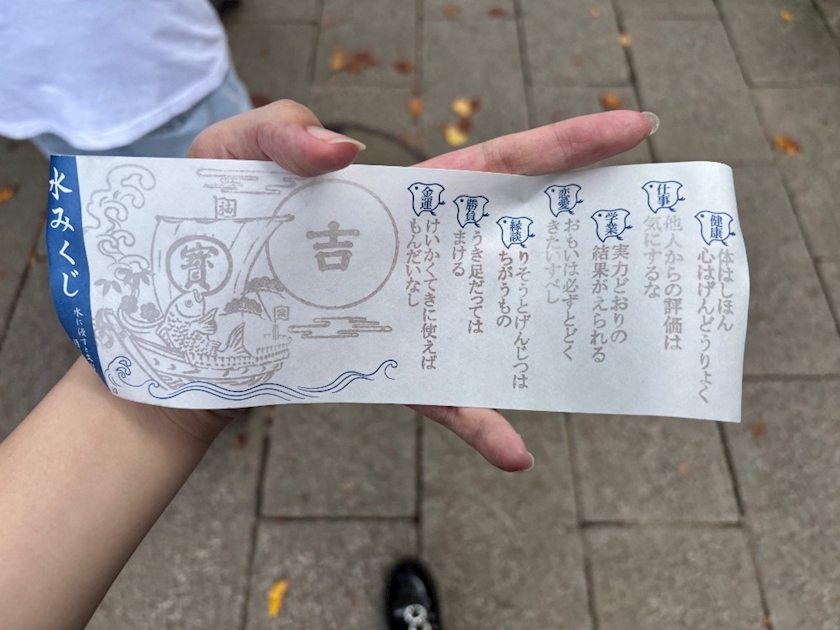 健康
体はしほん
心はげんどうりょく
仕事
他人からの評価は
気にするな
学業
実力どおりの
結果がえられる
恋愛
おもいは必ずとどく
きたいすべし
縁談
りそうとげんじつは
ちがうもの
勝負
うき足だっては
まける
金運
けいかくてきに使えば
もんだいなし
吉
寶
水みくじ
水に浸すと